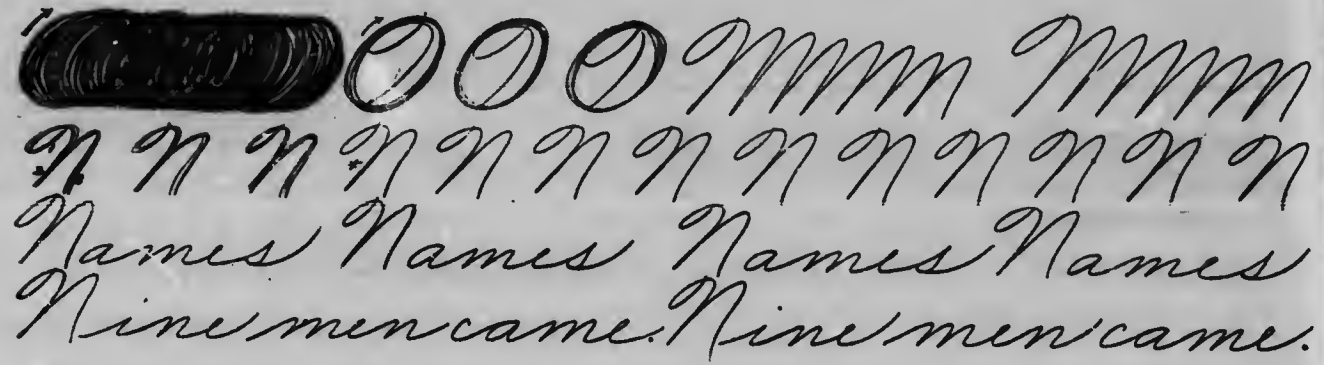 N N N N N N N N N N N N N
Names Names Names Names
Nine men came. Nine men came.